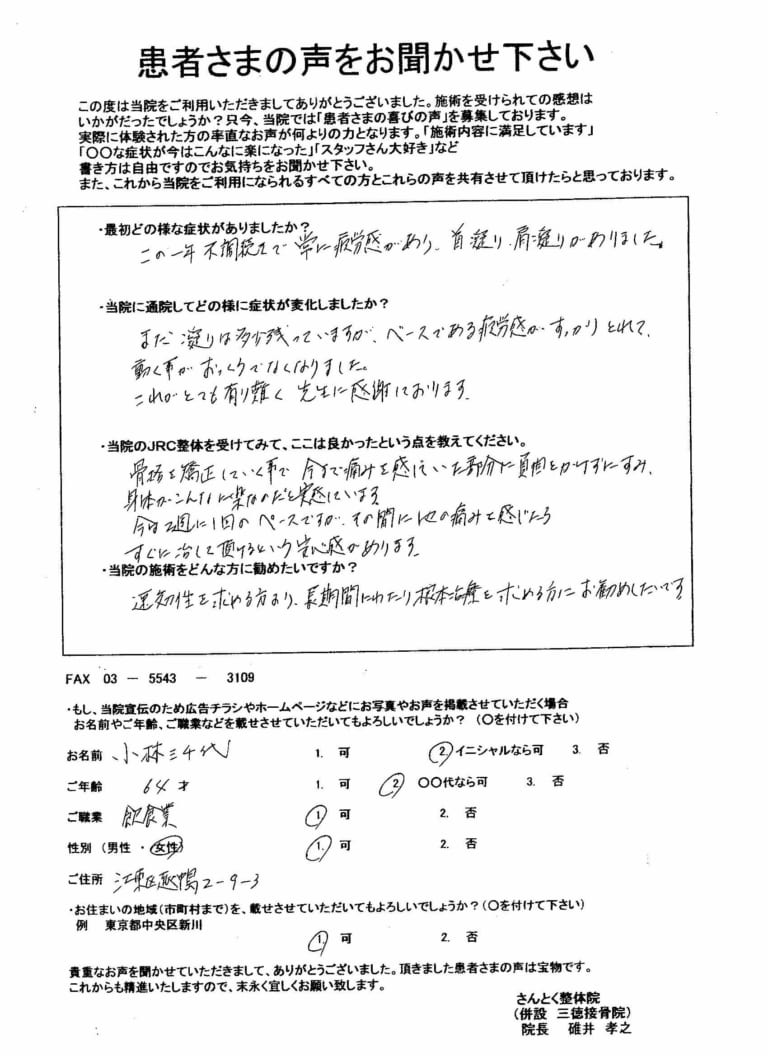 患者さまの声をお聞かせ下さい
この度は当院をご利用いただきましてありがとうございました。施術を受けられての感想は
いかがだったでしょうか？只今、当院では「患者さまの喜びの声」を募集しております。
実際に体験された方の率直なお声が何よりの力となります。「施術内容に満足しています」
「〇〇な症状が今はこんなに楽になった」「スタッフさん大好き」など
書き方は自由ですのでお気持ちをお聞かせ下さい。
また、これから当院をご利用になられるすべての方とこれらの声を共有させて頂けたらと思っております。
・最初どの様な症状がありましたか？
この一年 不調続きで 常に疲労感があり、首凝り、肩凝りがありました。
・当院に通院してどの様に症状が変化しましたか？
まだ凝りは多少残っていますが、ベースである疲労感がすっかりとれて、
動く事がおっくうでなくなりました。
これがとても有り難く 先生に感謝しております。
・当院のJRC整体を受けてみて、ここは良かったという点を教えてください。
骨格を矯正していく事で 今まで痛みを感じていた部分に負担をかけずにすみ、
身体がこんなに楽なのだと実感しています
今は2週に1回のペースですが、その間に他の痛みを感じたら
すぐに治して頂けるという安心感があります。
・当院の施術をどんな方に勧めたいですか？
速効性を求める方より、長期間にわたり根本治療を求める方にお勧めしたいです
FAX 03 － 5543 － 3109
・もし、当院宣伝のため広告チラシやホームページなどにお写真やお声を掲載させていただく場合
お名前やご年齢、ご職業などを載せさせていただいてもよろしいでしょうか？（〇を付けて下さい）
お名前 小林三千代 1. 可 2. イニシャルなら可 3. 否
ご年齢 64才 1. 可 2 〇〇代なら可 3. 否
ご職業 飲食業 1 可 2. 否
性別 （男性 ・ 女性） 1. 可 2. 否
ご住所 江東区 2-9-3
・お住まいの地域（市町村まで）を、載せさせていただいてもよろしいでしょうか？（〇を付けて下さい）
例 東京都中央区新川
1 可 2. 否
貴重なお声を聞かせていただきまして、ありがとうございました。頂きました患者さまの声は宝物です。
これからも精進いたしますので、末永く宜しくお願い致します。
さんとく整体院
（併設 三徳接骨院）
院長 碓井 孝之